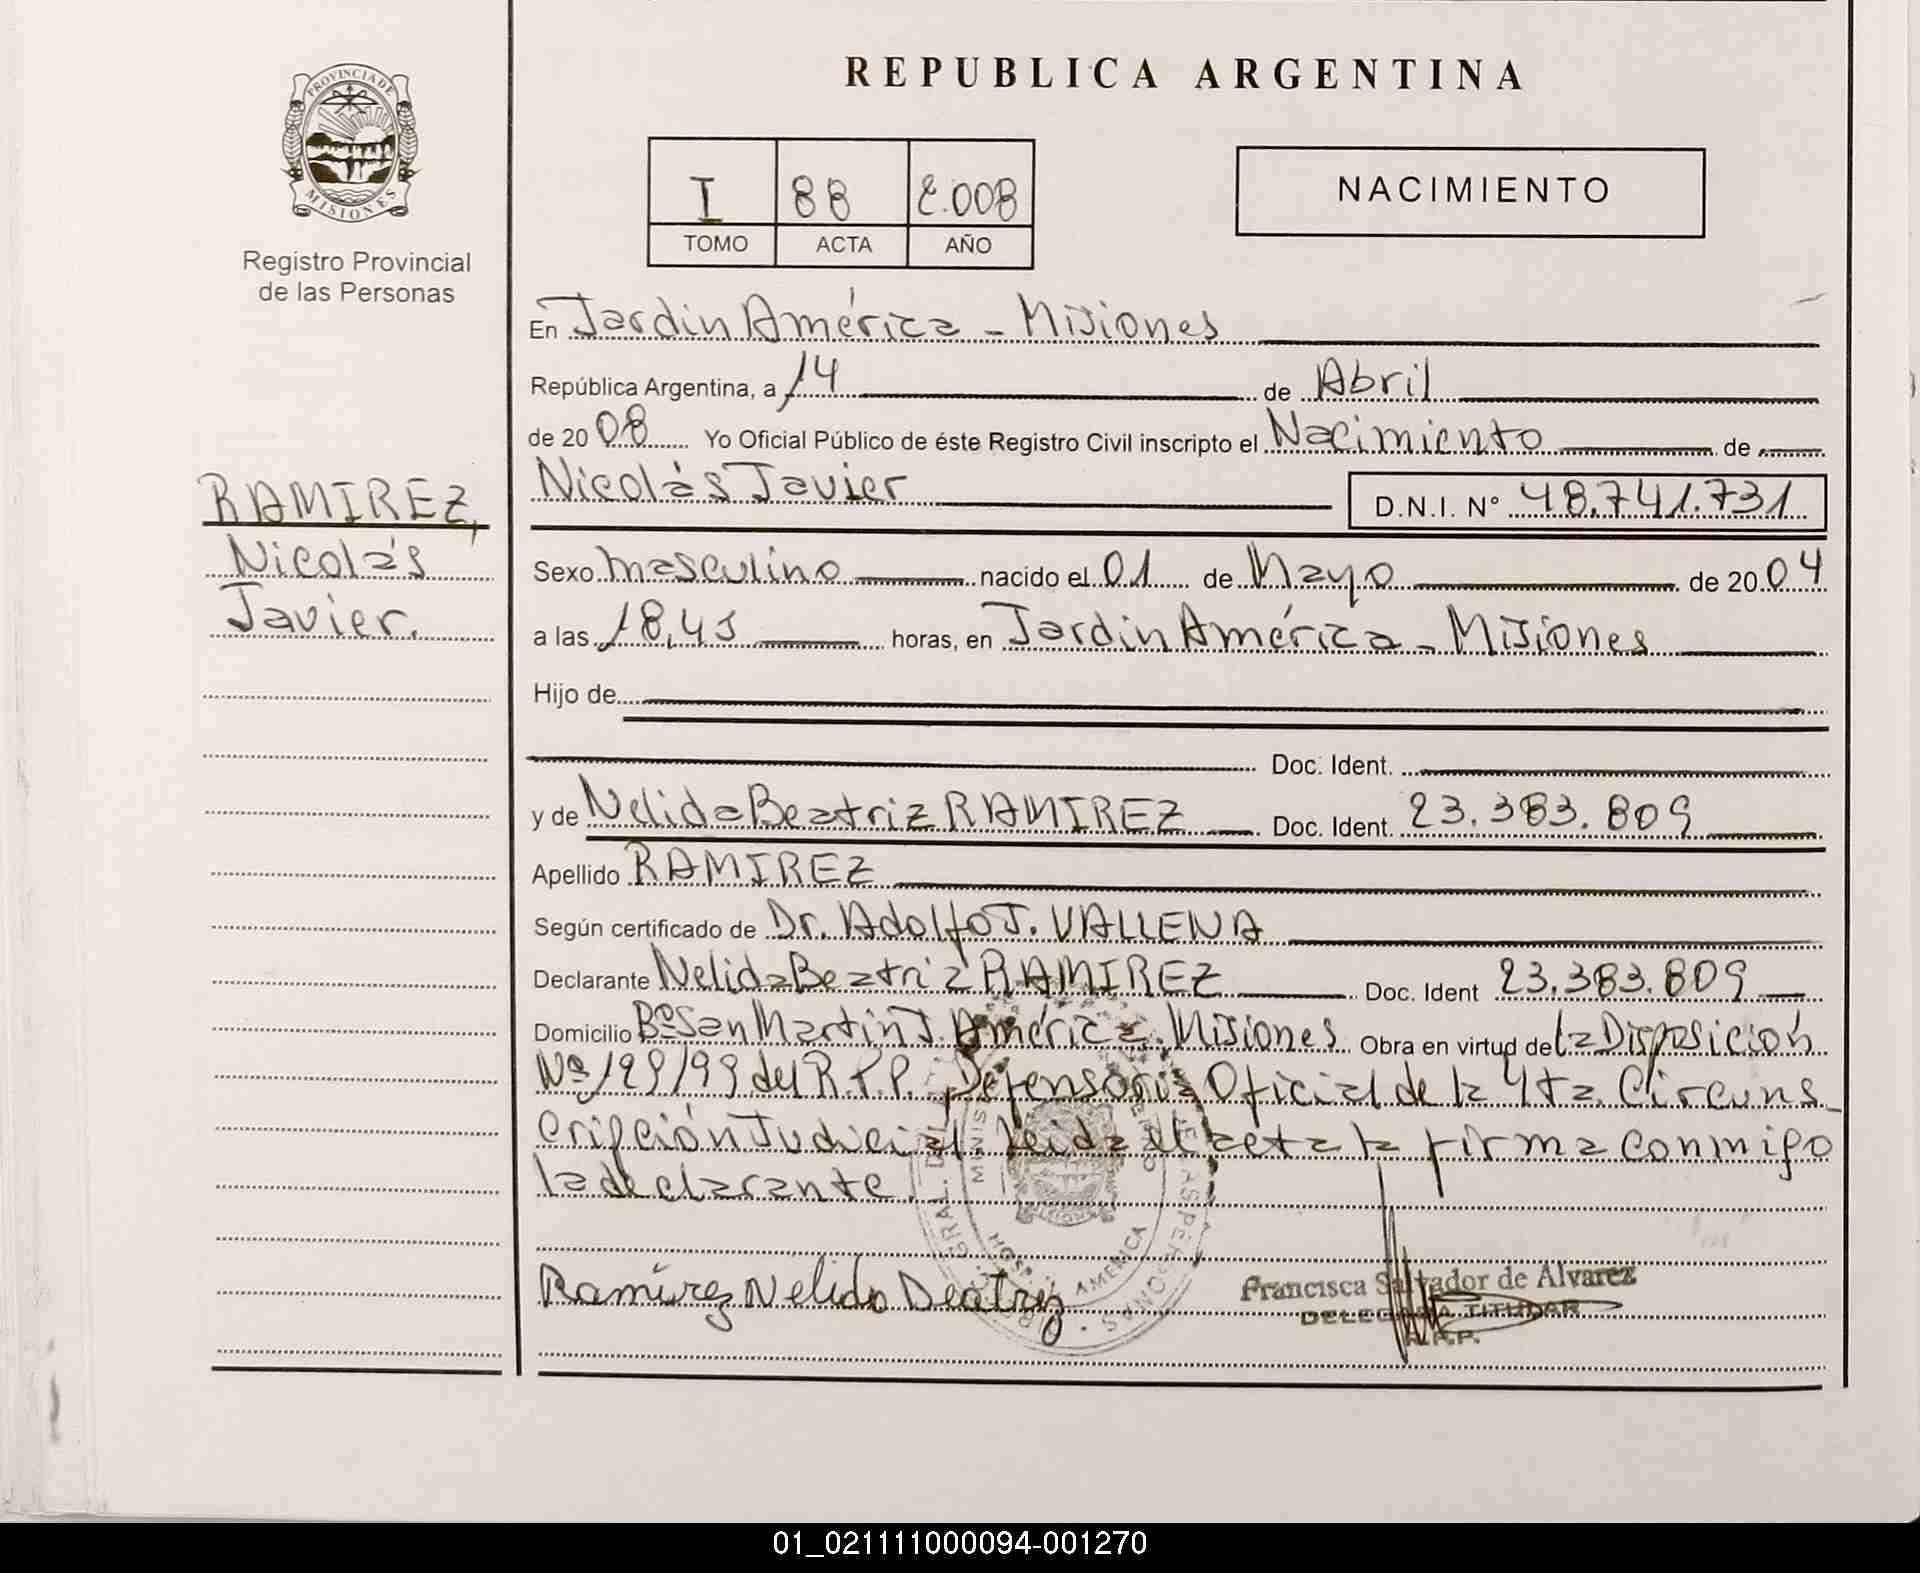 PROVINCIA DE
MISIONES
Registro Provincial
de las Personas
RAMIREZ,
Nicolás
Javier.
REPUBLICA ARGENTINA
I 88 2.008
TOMO ACTA AÑO
NACIMIENTO
En Jardín América - Misiones
República Argentina, a 14 de Abril
de 2008 Yo Oficial Público de éste Registro Civil inscripto el Nacimiento de
Nicolás Javier D.N.I. N° 48.741.731
Sexo masculino nacido el 01 de Mayo de 2004
a las 18,45 horas, en Jardín América - Misiones
Hijo de
Doc. Ident.
y de Nelida Beatriz RAMIREZ Doc. Ident. 23.383.809
Apellido RAMIREZ
Según certificado de Dr. Adolfo J. VALLENA
Declarante Nelida Beatriz RAMIREZ Doc. Ident 23.383.809
Domicilio Bº San Martín J. América. Misiones Obra en virtud de la Disposición
Nº 199/99 del R.P.P. Defensoría Oficial de la 4ta. Circuns_
cripción Judicial leida el acta la firma conmigo
la declarante.
Ramirez Nelida Beatriz
Francisca Salvador de Alvarez
DELEGADA TITULAR
R.P.P.
01_021111000094-001270